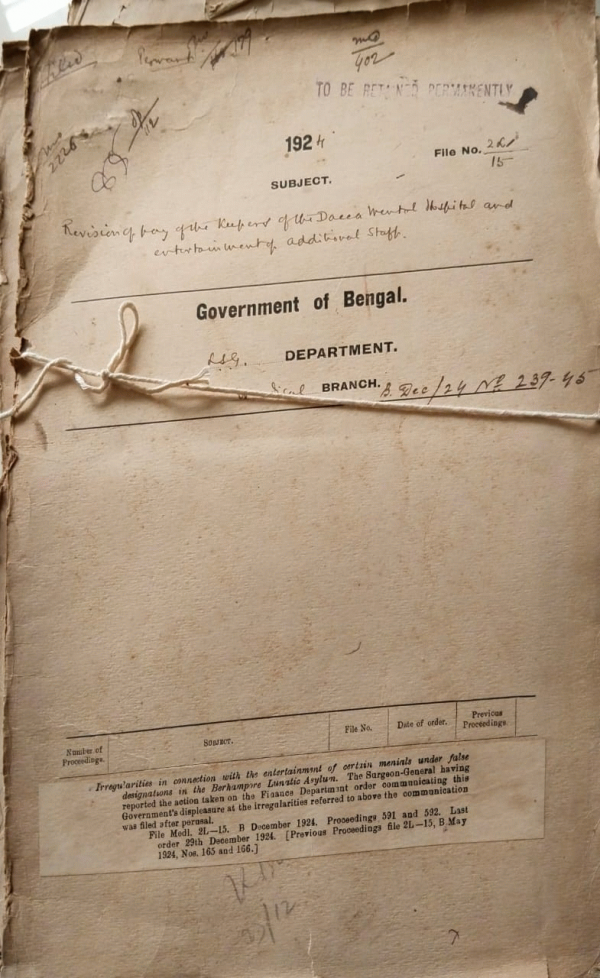 Filed
TO BE RETAINED PERMANENTLY
402
1924
File No. 2L/15
SUBJECT.
Revision of pay of the Keepers of the Dacca Mental Hospital and
entertainment of additional Staff.
Government of Bengal.
L.S.G. DEPARTMENT.
BRANCH. B. Dec/24 Nº 239-45
Number of Proceedings.
SUBJECT.
File No.
Date of order.
Previous Proceedings.
Irregularities in connection with the entertainment of certain menials under false
designations in the Berhampore Lunatic Asylum. The Surgeon-General having
reported the action taken on the Finance Department order communicating this
Government's displeasure at the irregularities referred to above the communication
was filed after perusal.
File Medl. 2L—15. B December 1924. Proceedings 591 and 592. Last
order 29th December 1924. [Previous Proceedings file 2L—15, B May
1924, Nos. 165 and 166.]